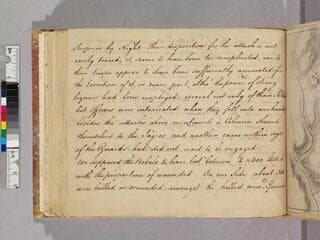 Surprise by Night. Their disposition for the attack is not
easily traced; it seems to have been too complicated, nor do
their troops appear to have been sufficiently animated for
the execution of it in every part, altho' the power of strong
liquor had been employed; several not only of their Sold:
but Officers were intoxicated when they fell into our hands
besides the Attacks above mentioned a Column shewed
themselves to the Jagers and another came within sight
of the Guards but did not wait to be engaged.
We supposed the Rebels to have lost between 2 & 300 killed
with the proportion of wounded. On our side about 300
were killed or wounded, amongst the killed were